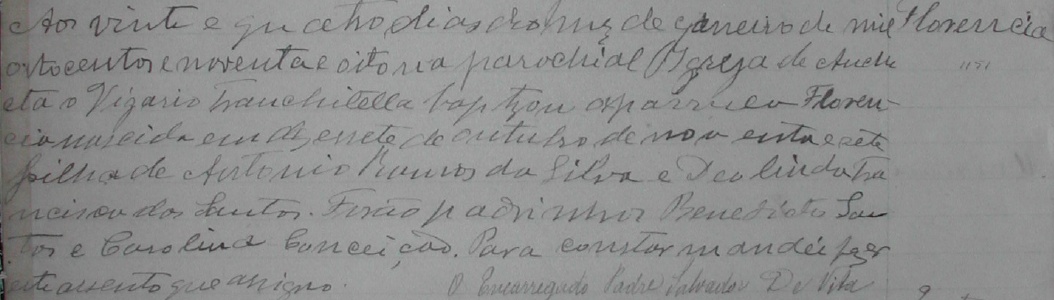 Aos vinte e quatro dias do mez de janeiro de mil Florencia
oitocentos e noventa e oito na parochial Igreja de Anchi
eta o Vigario Franchitella baptizou a parvula Floren-
cia nascida em dezesete de outubro de noventa e sete
filha de Antonio Ramos da Silva e Deolinda Fra
ncisca dos Santos. Forão padrinhos Benedicto San
tos e Carolina Conceição. Para constar mandei fazer
este assento que assigno. O Encarregado Padre Salvador De Vita